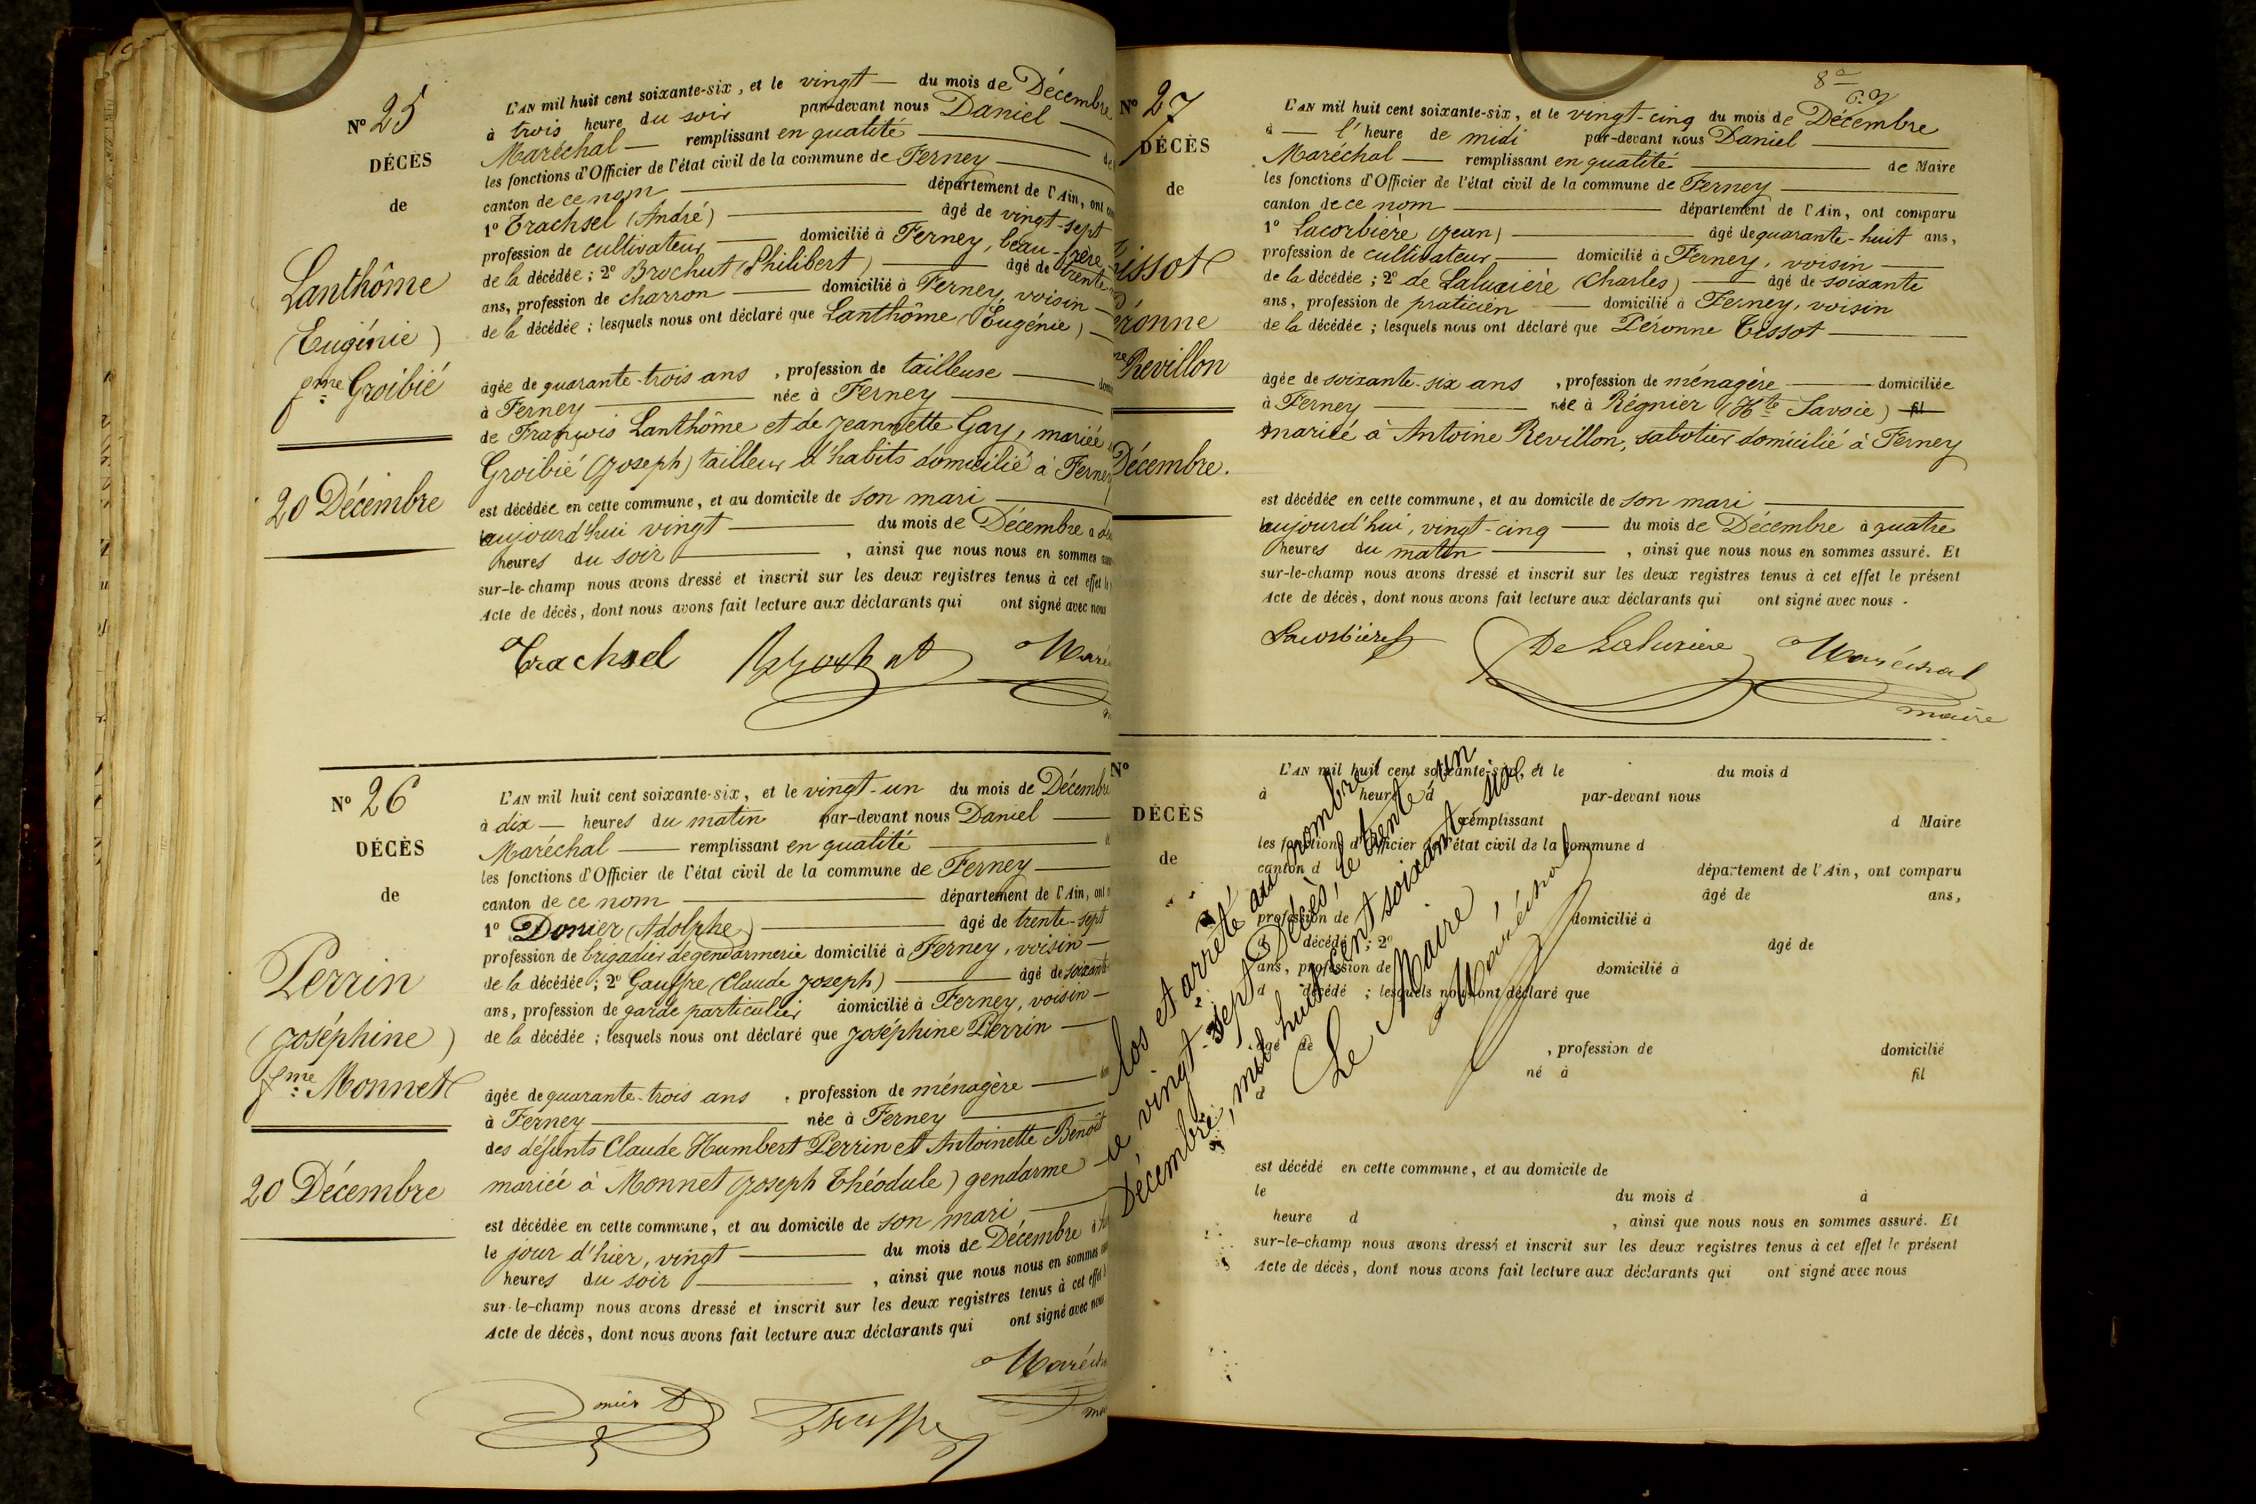 Nº 25
DÉCÈS
de
Lanthôme
(Eugénie)
fme Groibié
20 Décembre
L'AN mil huit cent soixante-six, et le vingt — du mois de Décembre
à trois heure du soir par-devant nous Daniel —
Maréchal — remplissant en qualité — de
les fonctions d'Officier de l'état civil de la commune de Ferney —
canton de ce nom — département de l'Ain, ont
1º Trachsel (André) — âgé de vingt-sept
profession de cultivateur — domicilié à Ferney, beau-frère
de la décédée ; 2º Brochut (Philibert) — âgé de trente
ans, profession de charron — domicilié à Ferney, voisin —
de la décédée ; lesquels nous ont déclaré que Lanthôme (Eugénie) —
âgée de quarante-trois ans, profession de tailleuse —
à Ferney — née à Ferney —
de François Lanthôme et de Jeannette Gay, mariée
Groibié (Joseph) tailleur d'habits domicilié à Ferney
est décédée en cette commune, et au domicile de son mari —
aujourd'hui vingt — du mois de Décembre à
heures du soir —, ainsi que nous nous en sommes
sur-le-champ nous avons dressé et inscrit sur les deux registres tenus à cet effet le
Acte de décès, dont nous avons fait lecture aux déclarants qui ont signé avec nous
Trachsel Brochut
Nº 26
DÉCÈS
de
Perrin
(Joséphine)
fme Monnet
20 Décembre
L'AN mil huit cent soixante-six, et le vingt-un du mois de Décembre
à dix — heures du matin par-devant nous Daniel —
Maréchal — remplissant en qualité —
les fonctions d'Officier de l'état civil de la commune de Ferney —
canton de ce nom — département de l'Ain, ont
1º Donier (Adolphe) — âgé de trente-sept
profession de brigadier de gendarmerie domicilié à Ferney, voisin —
de la décédée ; 2º Gauffre (Claude Joseph) — âgé de soixante
ans, profession de garde particulier domicilié à Ferney, voisin —
de la décédée ; lesquels nous ont déclaré que Joséphine Perrin —
âgée de quarante-trois ans, profession de ménagère —
à Ferney — née à Ferney —
des défunts Claude Humbert Perrin et Antoinette Benoît
mariée à Monnet (Joseph Théodule) gendarme —
est décédée en cette commune, et au domicile de son mari —
le jour d'hier, vingt — du mois de Décembre à
heures du soir —, ainsi que nous nous en sommes
sur-le-champ nous avons dressé et inscrit sur les deux registres tenus à cet effet
Acte de décès, dont nous avons fait lecture aux déclarants qui ont signé avec nous
Nº 27
DÉCÈS
de
Tissot
Péronne
Revillon
Décembre.
L'AN mil huit cent soixante-six, et le vingt-cinq du mois de Décembre
à — l'heure de midi par-devant nous Daniel —
Maréchal — remplissant en qualité — de Maire
les fonctions d'Officier de l'état civil de la commune de Ferney —
canton de ce nom — département de l'Ain, ont comparu
1º Lacorbière (Jean) — âgé de quarante-huit ans,
profession de cultivateur — domicilié à Ferney, voisin —
de la décédée ; 2º de Laluxière (Charles) — âgé de soixante
ans, profession de praticien — domicilié à Ferney, voisin
de la décédée ; lesquels nous ont déclaré que Péronne Tissot —
âgée de soixante-six ans, profession de ménagère — domiciliée
à Ferney — née à Régnier (Hte Savoie) fil
mariée à Antoine Revillon, sabotier domicilié à Ferney
est décédée en cette commune, et au domicile de son mari —
aujourd'hui, vingt-cinq — du mois de Décembre à quatre
heures du matin —, ainsi que nous nous en sommes assuré. Et
sur-le-champ nous avons dressé et inscrit sur les deux registres tenus à cet effet le présent
Acte de décès, dont nous avons fait lecture aux déclarants qui ont signé avec nous.
Lacorbière De Laluxiere Maréchal
maire
Nº
DÉCÈS
de
L'AN mil huit cent soixante-six, et le du mois d
à heure d par-devant nous
remplissant d Maire
les fonctions d'Officier de l'état civil de la commune d
canton d département de l'Ain, ont comparu
âgé de ans,
profession de domicilié à
d décédé ; 2º âgé de
ans, profession de domicilié à
d décédé ; lesquels nous ont déclaré que
âgé de , profession de domicilié
à né à fil
d
est décédé en cette commune, et au domicile de
le du mois d à
heure d , ainsi que nous nous en sommes assuré. Et
sur-le-champ nous avons dressé et inscrit sur les deux registres tenus à cet effet le présent
Acte de décès, dont nous avons fait lecture aux déclarants qui ont signé avec nous
Clos et arrêté au nombre
de vingt-sept Décès, le trente un
Décembre, mil huit cent soixante six
Le Maire
Maréchal